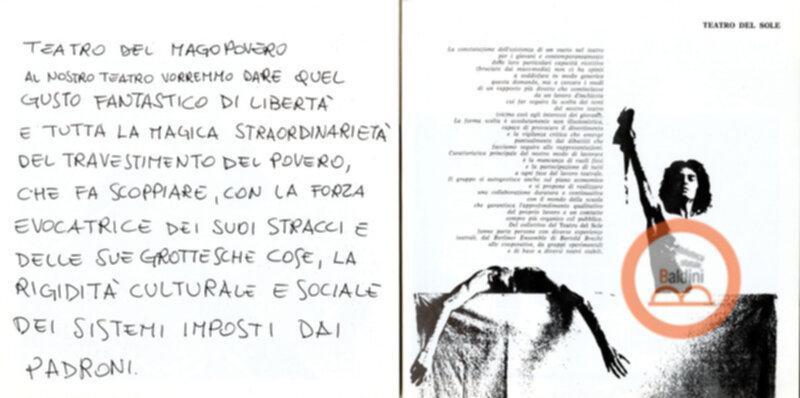 TEATRO DEL MAGOPOVERO
AL NOSTRO TEATRO VORREMMO DARE QUEL
GUSTO FANTASTICO DI LIBERTÀ
E TUTTA LA MAGICA STRAORDINARIETÀ
DEL TRAVESTIMENTO DEL POVERO,
CHE FA SCOPPIARE, CON LA FORZA
EVOCATRICE DEI SUOI STRACCI E
DELLE SUE GROTTESCHE COSE, LA
RIGIDITÀ CULTURALE E SOCIALE
DEI SISTEMI IMPOSTI DAI
PADRONI.
TEATRO DEL SOLE
La constatazione dell'esistenza di un vuoto nel teatro
per i giovani e contemporaneamente
delle loro particolari capacità ricettive
(bruciate dai mass-media) non ci ha spinti
a soddisfare in modo generico
questa domanda, ma a cercare i modi
di un rapporto più diretto che cominciasse
da un lavoro d'inchiesta
cui far seguire la scelta dei temi
del nostro teatro
(vicino così agli interessi dei giovani).
La forma scelta è assolutamente non illusionistica,
capace di provocare il divertimento
e la vigilanza critica che emerge
puntualmente dai dibattiti che
facciamo seguire alle rappresentazioni.
Caratteristica principale del nostro modo di lavorare
è la mancanza di ruoli fissi
e la partecipazione di tutti
a ogni fase del lavoro teatrale.
Il gruppo si autogestisce anche sul piano economico
e si propone di realizzare
una collaborazione duratura e continuativa
con il mondo della scuola
che garantisca l'approfondimento qualitativo
del proprio lavoro e un contatto
sempre più organico col pubblico.
Del collettivo del Teatro del Sole
fanno parte persone con diverse esperienze
teatrali, dal Berliner Ensemble di Bertold Brecht
alle cooperative, da gruppi sperimentali
e di base a diversi teatri stabili.
biblioteca
statale
Baldini